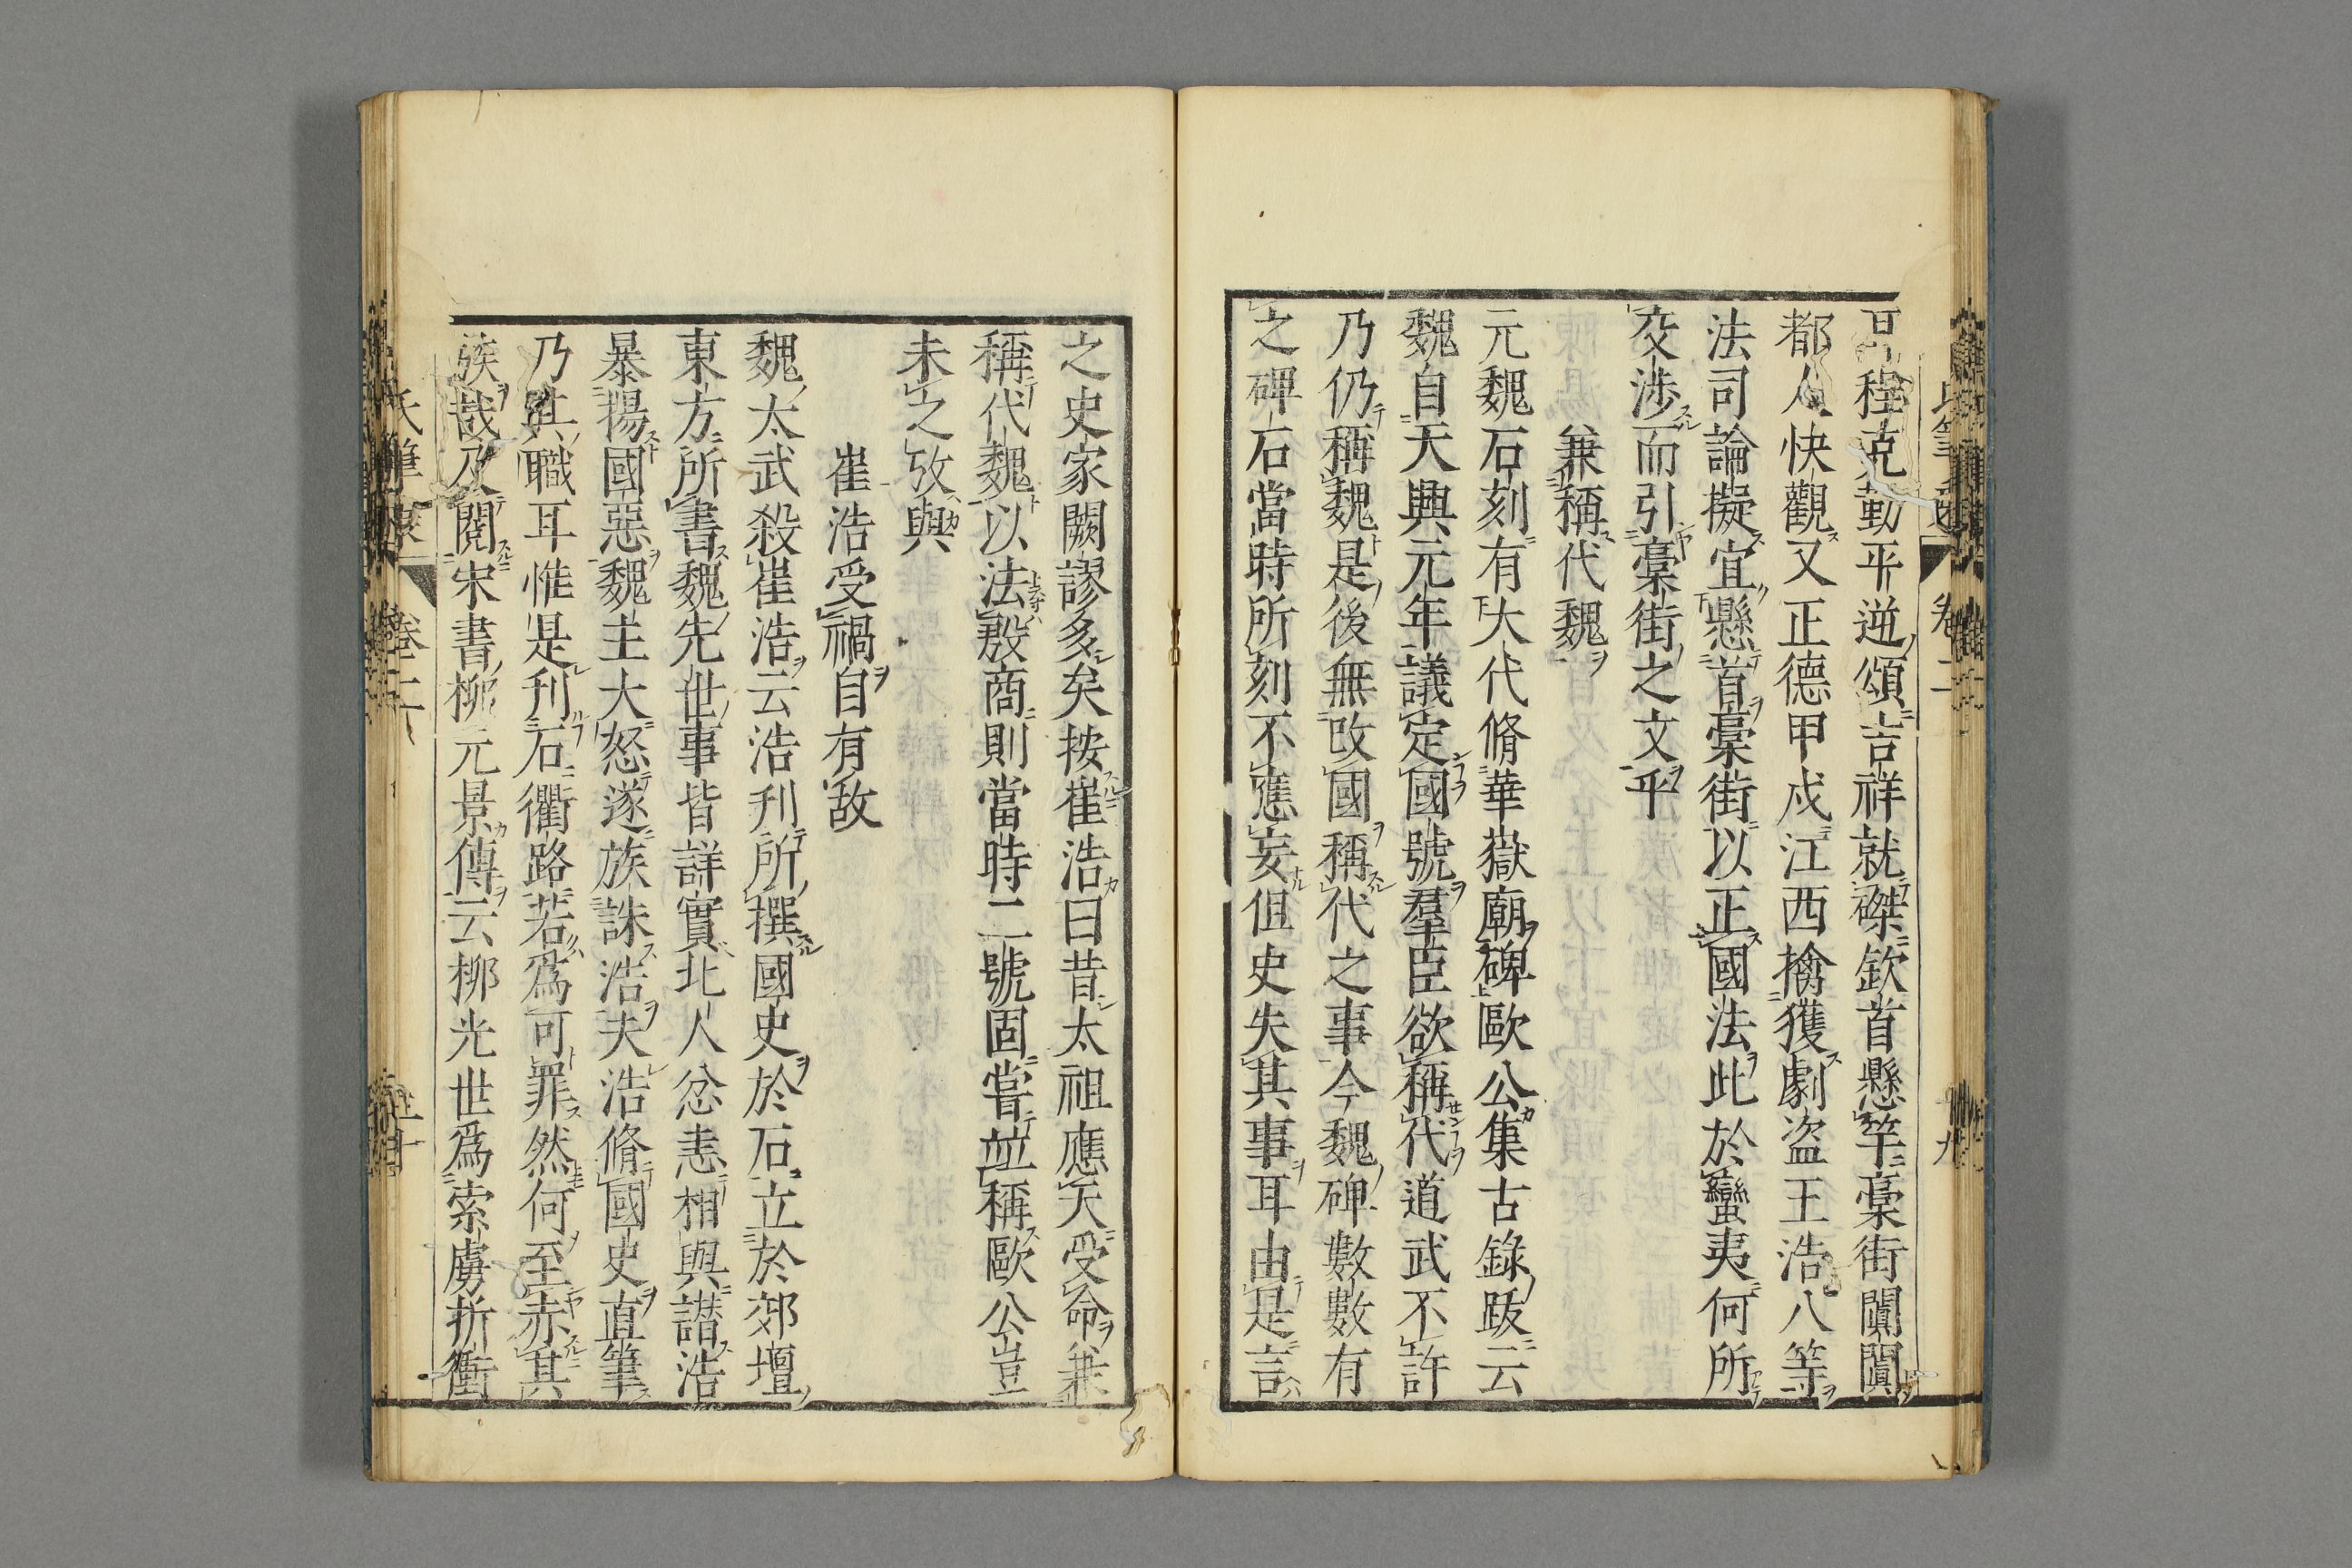 程克勤平逆頌言祥就磔欽首懸竿藁街闐闐
都人快觀又正德甲戌江西擒獲劇盜王浩八等
法司論擬宜懸首藁街以正國法此於蠻夷何所
交涉而引藁街之文乎
兼稱代魏
元魏石刻有大代脩華嶽廟碑歐公集古錄跋云
魏自天興元年議定國號羣臣欲稱代道武不許
乃仍稱魏是後無改國稱代之事今魏碑數數有
之碑石當時所刻不應妄但史失其事耳由是言
之史家闕謬多矣按崔浩曰昔太祖應天受命兼
稱代魏以法殷商則當時二號固嘗竝稱歐公豈
未之攷與
崔浩受禍自有故
魏太武殺崔浩云浩刋所撰國史於石立於郊壇
東方所書魏先世事皆詳實北人忿恚相與譖浩
暴揚國惡魏主大怒遂族誅浩夫浩脩國史直筆
乃其職耳惟是刋石衢路若爲可罪然何至赤其
族哉及閱宋書柳元景傳云柳光世爲索虜折衝
卷二
卷二